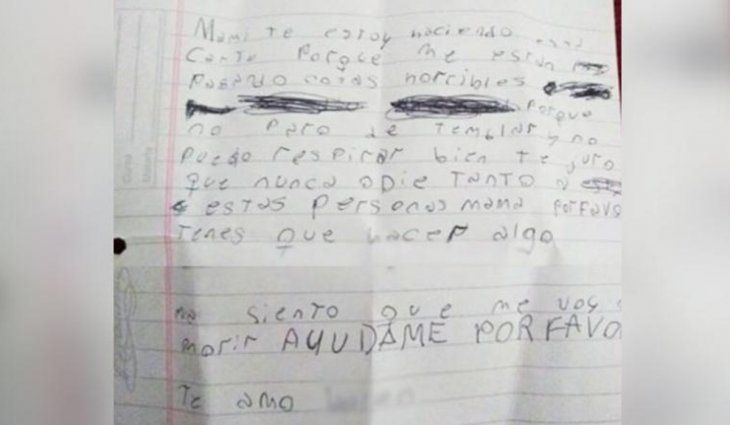 Mami te estoy haciendo esta
Carta Porque me están
Pasando cosas horribles
Porque
no Paro de Temblar y no
Puedo respirar bien Te juro
que nunca odie TANTO a
estas Personas mama Porfavo
Tenes que hacer algo
me siento que me voy
morir AYUDAME PORFAVO
Te amo